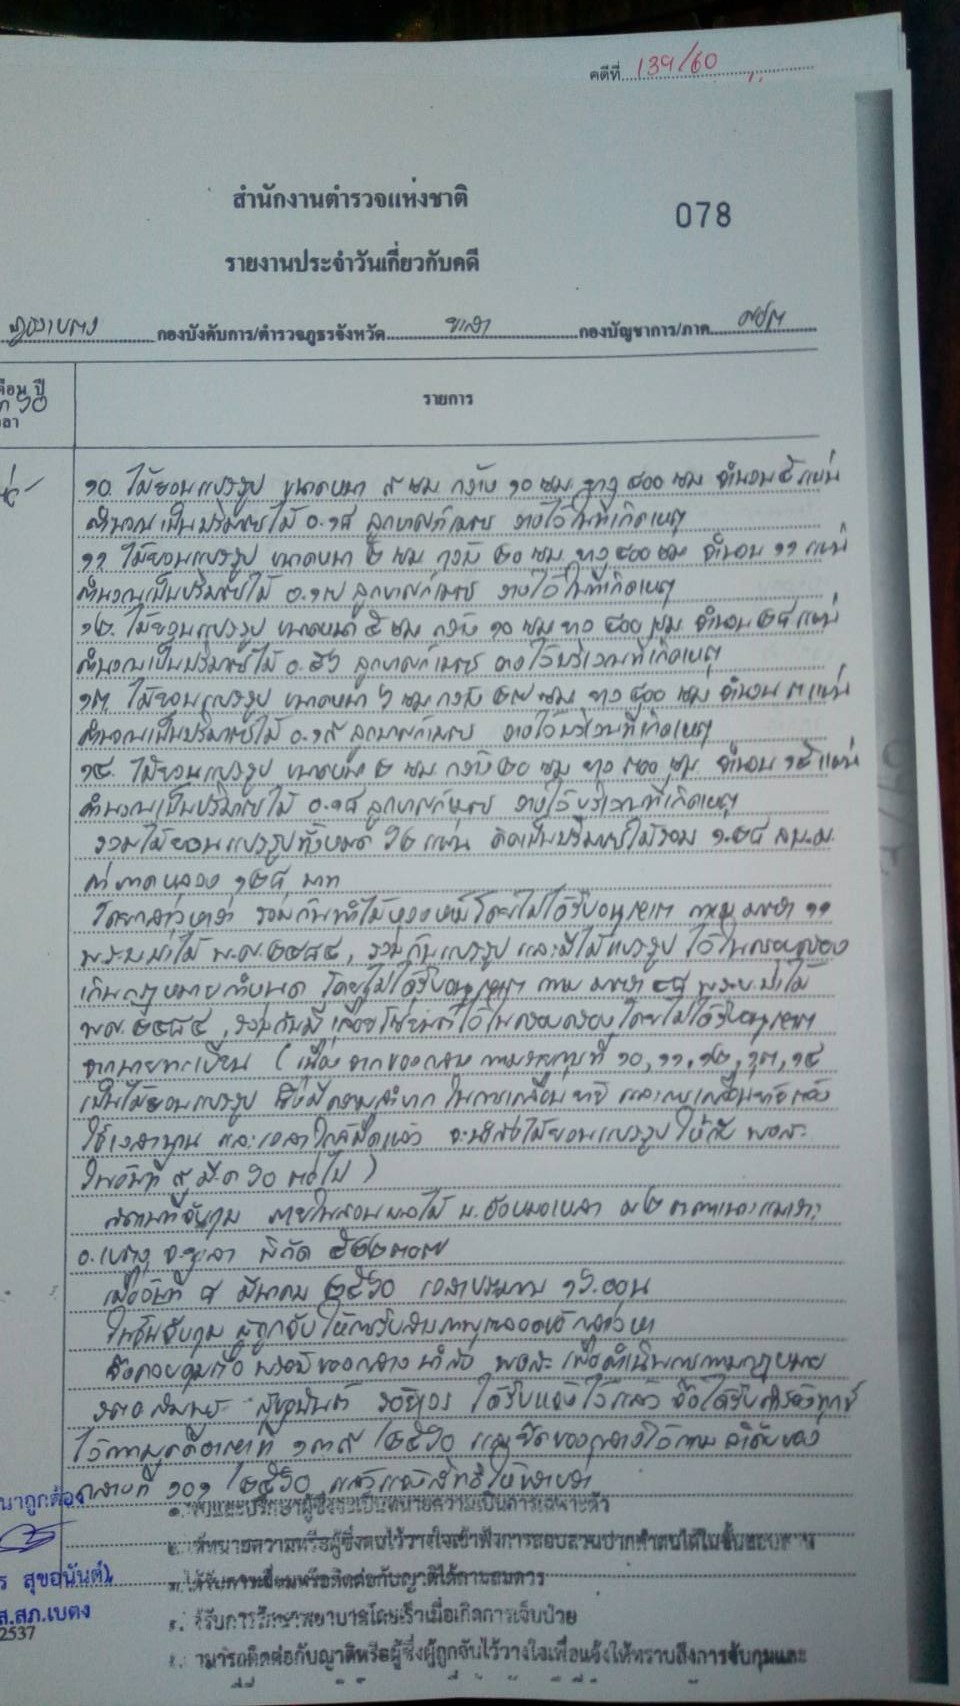 คดีที่ 139/60
สำนักงานตำรวจแห่งชาติ
078
รายงานประจำวันเกี่ยวกับคดี
กองบังคับการ/ตำรวจภูธรจังหวัด ยะลา กองบัญชาการ/ภาค
เดือน ปี
รายการ
๑๐. ไม้ยอนแปรรูป ขนาดหนา ๙ ซม กว้าง ๑๐ ซม ยาว ๔๐๐ ซม จำนวน ๕ แผ่น
คำนวณเป็นปริมาตรไม้ ๐.๑๘ ลูกบาศก์เมตร วางไว้ในที่เกิดเหตุ
๑๑ ไม้ยอนแปรรูป ขนาดหนา ๒ ซม กว้าง ๒๐ ซม ยาว ๔๐๐ ซม จำนวน ๑๑ แผ่น
คำนวณเป็นปริมาตรไม้ ๐.๑๗ ลูกบาศก์เมตร วางไว้ในที่เกิดเหตุ
๑๒. ไม้ยอนแปรรูป ขนาดหนา ๕ ซม กว้าง ๑๐ ซม ยาว ๔๐๐ ซม จำนวน ๒๘ แผ่น
คำนวณเป็นปริมาตรไม้ ๐.๕๖ ลูกบาศก์เมตร วางไว้บริเวณที่เกิดเหตุ
๑๓. ไม้ยอนแปรรูป ขนาดหนา ๖ ซม กว้าง ๒๗ ซม ยาว ๔๐๐ ซม จำนวน ๓ แผ่น
คำนวณเป็นปริมาตรไม้ ๐.๑๙ ลูกบาศก์เมตร วางไว้บริเวณที่เกิดเหตุ
๑๔. ไม้ยอนแปรรูป ขนาดหนา ๒ ซม. กว้าง ๒๐ ซม ยาว ๓๐๐ ซม จำนวน ๑๕ แผ่น
คำนวณเป็นปริมาตรไม้ ๐.๑๘ ลูกบาศก์เมตร วางไว้บริเวณที่เกิดเหตุ
รวมไม้ยอนแปรรูปทั้งหมด ๖๒ แผ่น คิดเป็นปริมาตรไม้รวม ๑.๒๘ ลบ.ม.
ค่าภาคหลวง ๑๒๘ บาท
โดยกล่าวหาว่า ร่วมกันทำไม้หวงห้ามโดยไม่ได้รับอนุญาต ตาม มาตรา ๑๑
พ.ร.บ.ป่าไม้ พ.ศ.๒๔๘๔, ร่วมกันแปรรูป และมีไม้แปรรูป ไว้ในครอบครอง
เกินกฎหมายกำหนด โดยไม่ได้รับอนุญาต ตาม มาตรา ๔๘ พ.ร.บ.ป่าไม้
พ.ศ.๒๔๘๔, ร่วมกันมีเลื่อยโซ่ยนต์ไว้ในครอบครองโดยไม่ได้รับอนุญาต
จากนายทะเบียน (เนื่องจากของกลาง ตามรายการที่ ๑๐,๑๑,๑๒,๑๓,๑๔
เป็นไม้ยอนแปรรูป ซึ่งมีความลำบาก ในการเคลื่อนย้าย และการเคลื่อนย้ายต้อง
ใช้เวลานาน และเวลาใกล้มืดแล้ว จะนำส่งไม้ยอนแปรรูป ให้กับ พงส.
ในวันที่ ๙ มี.ค ๖๐ ต่อไป)
สถานที่จับกุม ภายในสวนผลไม้ บ. ม.๒ ต.ตาเนาะแมเราะ
อ.เบตง จ.ยะลา พิกัด ๕๒๒๓๐๗
เมื่อวันที่ ๘ มีนาคม ๒๕๖๐ เวลาประมาณ ๑๖.๐๐ น
ในชั้นจับกุม ผู้ถูกจับให้การรับสารภาพตลอดข้อกล่าวหา
จึงควบคุมตัว พร้อมของกลาง นำส่ง พงส. เพื่อดำเนินการตามกฎหมาย
ร.ต.อ. สุขอนันต์ ได้รับแจ้งไว้แล้ว จึงได้รับคำร้องทุกข์
ไว้ตามคดีอาญาที่ ๑๓๙/๒๕๖๐ และยึดของกลางไว้ตาม ลำดับของ
กลางที่ ๑๐๑/๒๕๖๐ แล้วแจ้งสิทธิให้ทราบว่า
นาถูกต้อง
ร สุขอนันต์)
ส.สภ.เบตง
2537
๑. พบและปรึกษาผู้ซึ่งจะเป็นทนายความเป็นการเฉพาะตัว
๒. ให้ทนายความหรือผู้ซึ่งตนไว้วางใจเข้าฟังการสอบสวนปากคำตนได้ในชั้นสอบสวน
๓. ได้รับการเยี่ยมหรือติดต่อกับญาติได้ตามสมควร
๔. ได้รับการรักษาพยาบาลโดยเร็วเมื่อเกิดการเจ็บป่วย
๕. สามารถติดต่อกับญาติหรือผู้ซึ่งผู้ถูกจับไว้วางใจเพื่อแจ้งให้ทราบถึงการจับกุมและ